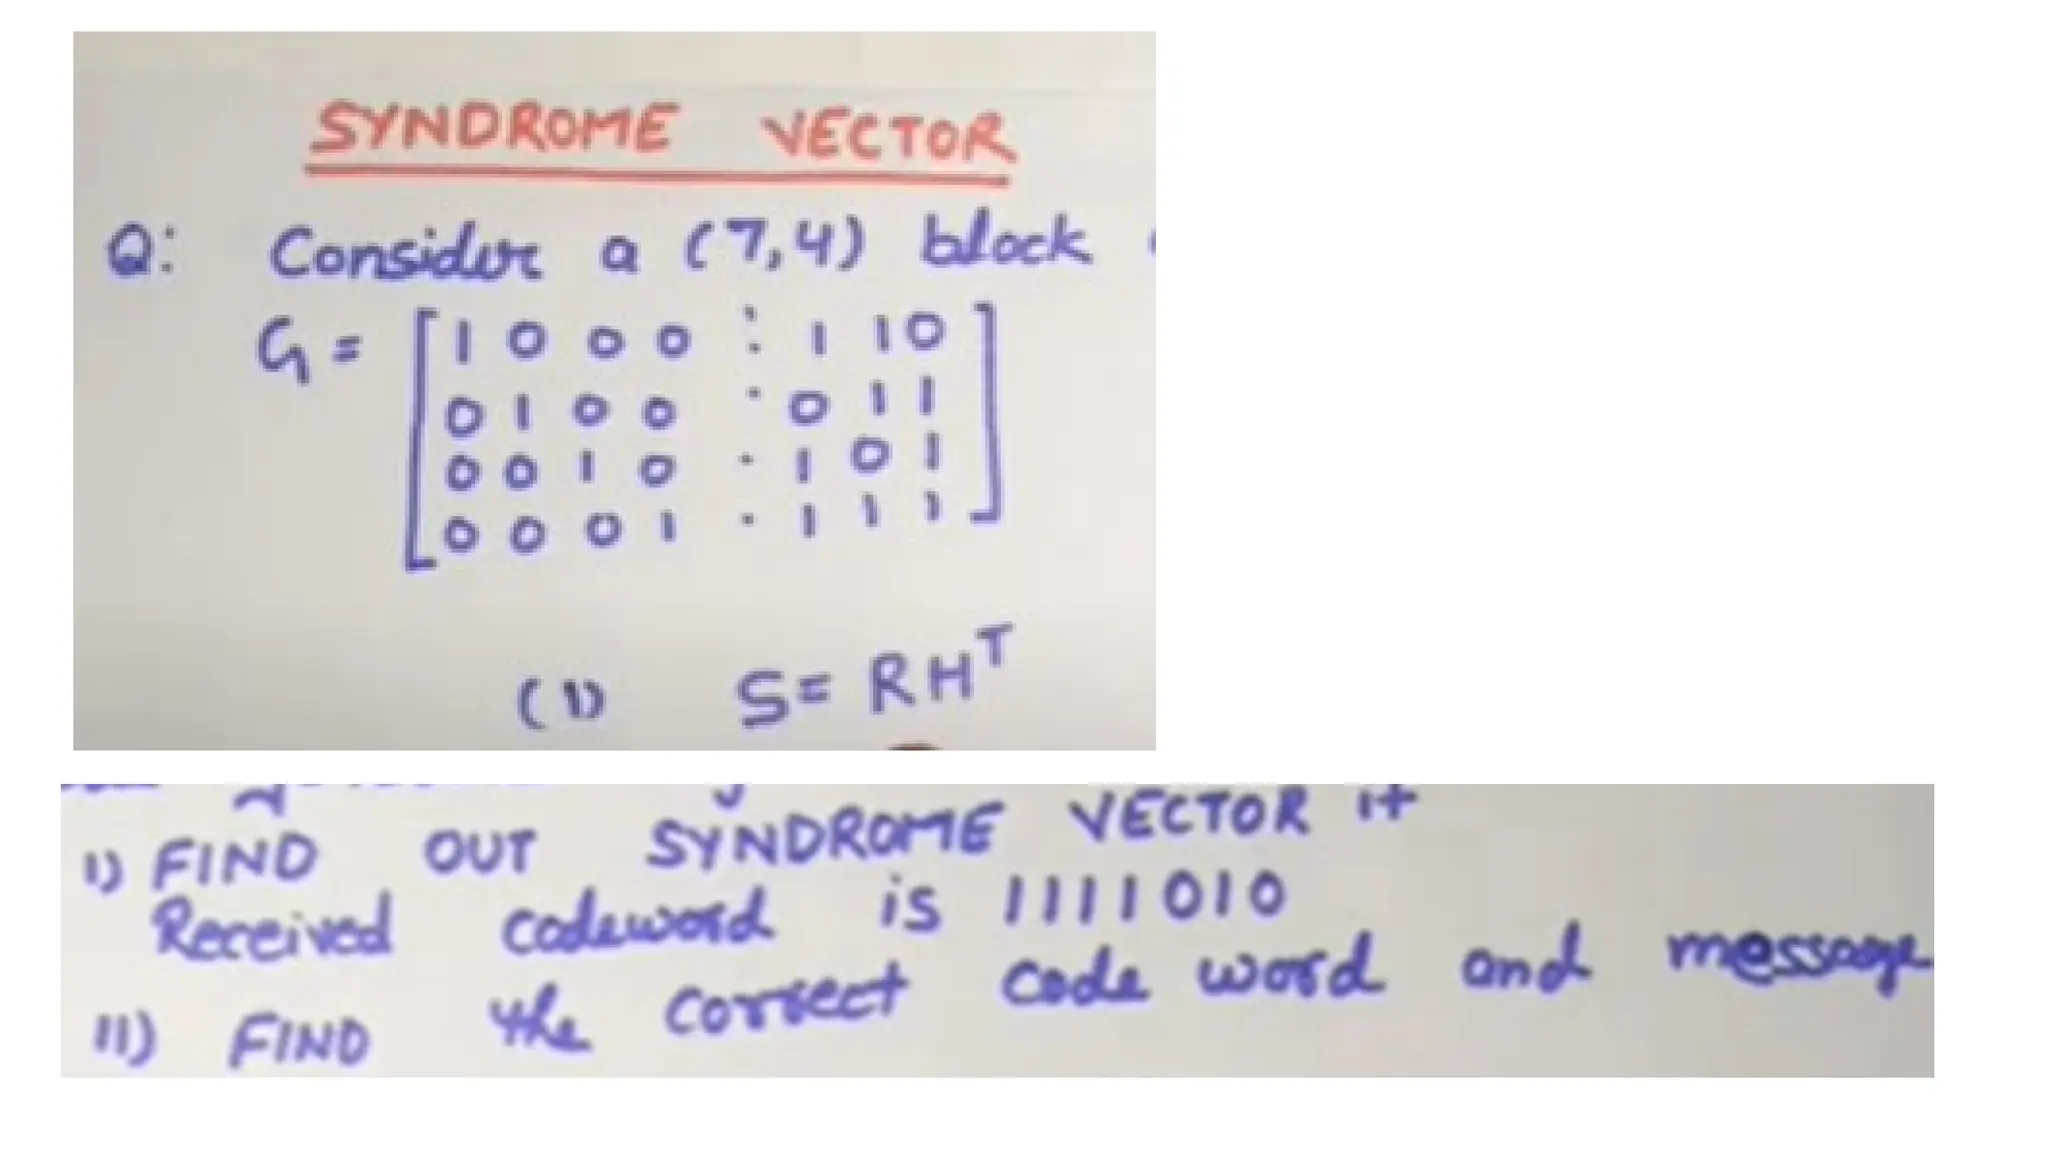 SYNDROME VECTOR
Q: Consider a (7,4) block
G = [ 1 0 0 0 : 1 1 0 ]
0 1 0 0 · 0 1 1
0 0 1 0 · 1 0 1
0 0 0 1 · 1 1 1
(1) S = RH^T
1) FIND OUT SYNDROME VECTOR if
Received codeword is 1111010
11) FIND the correct code word and message